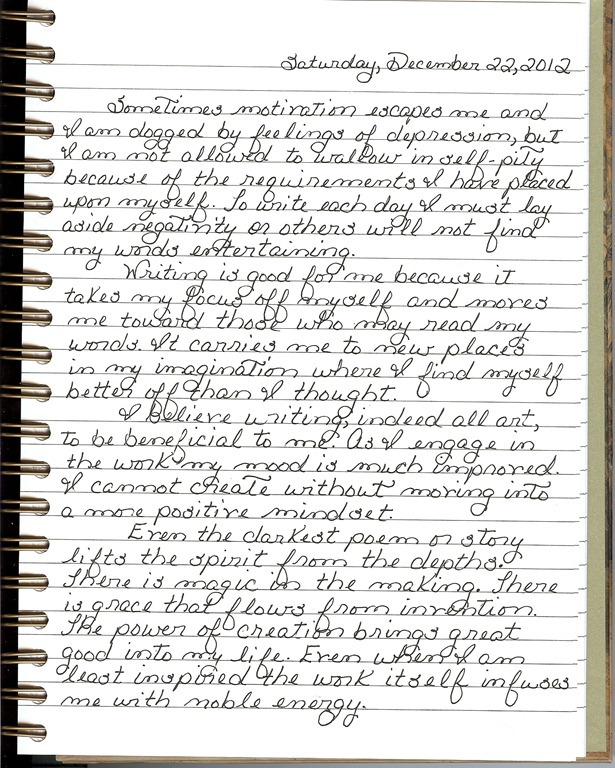 Saturday, December 22, 2012
Sometimes motivation escapes me and
I am dogged by feelings of depression, but
I am not allowed to wallow in self-pity
because of the requirements I have placed
upon myself. To write each day I must lay
aside negativity or others will not find
my words entertaining.
Writing is good for me because it
takes my focus off myself and moves
me toward those who may read my
words. It carries me to new places
in my imagination where I find myself
better off than I thought.
I believe writing, indeed all art,
to be beneficial to me. As I engage in
the work my mood is much improved.
I cannot create without moving into
a more positive mindset.
Even the darkest poem or story
lifts the spirit from the depths.
There is magic in the making. There
is grace that flows from invention.
The power of creation brings great
good into my life. Even when I am
least inspired the work itself infuses
me with noble energy.